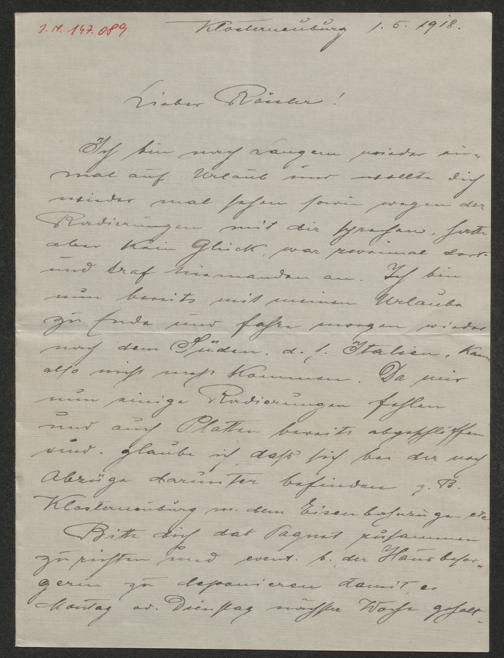 J.N. 147.089
Klosterneuburg 1.6.1918.
Lieber Roessler!
Ich bin nach Langem wieder ein-
mal auf Urlaub und wollte dich
wieder mal sehen sowie wegen der
Radierungen mit dir sprechen, hatte
aber kein Glück, war zweimal dort
und traf niemanden an. Ich bin
nun bereits mit meinem Urlaube
zu Ende und fahre morgen wieder
nach dem Süden, d. h. Italien, kann
also nicht mehr kommen. Da mir
nun einige Radierungen fehlen
und auch Platten bereits abgeschliffen
sind, glaube ich daß sich bei dir noch
Abzüge darunter befinden z. B.
Klosterneuburg m. dem Eisenbahnzuge etc
Bitte dich das Paquet zusammen
zu richten und event. b. der Hausbesor-
gerin zu deponieren damit es
Montag od. Dienstag nächster Woche geholt